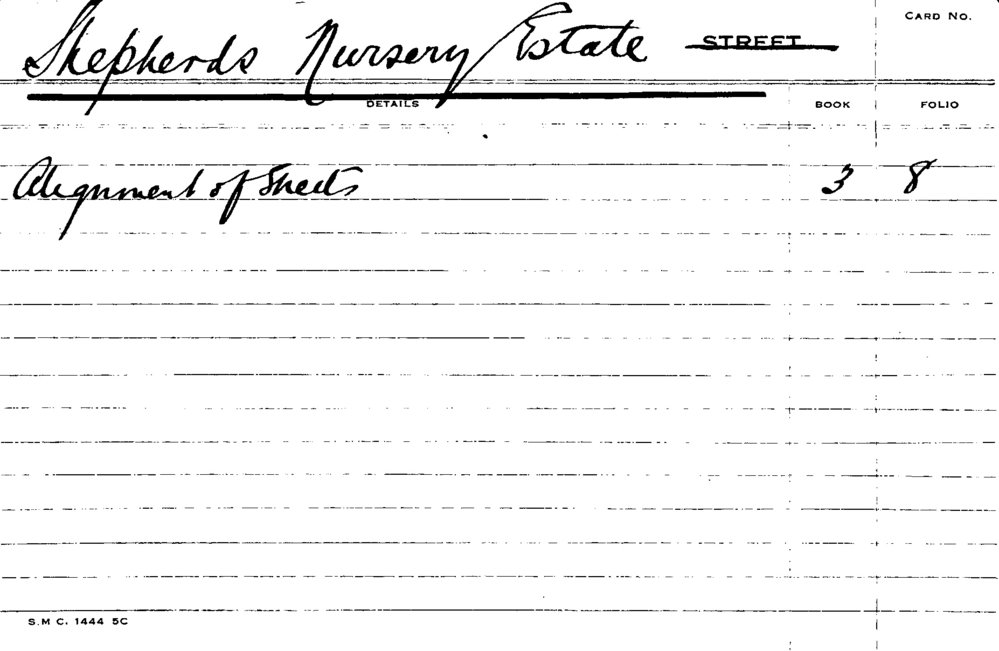 CARD No.
Shepherds Nursery Estate STREET
DETAILS BOOK FOLIO
Alignment of Streets 3 8
S.M C. 1444 5C